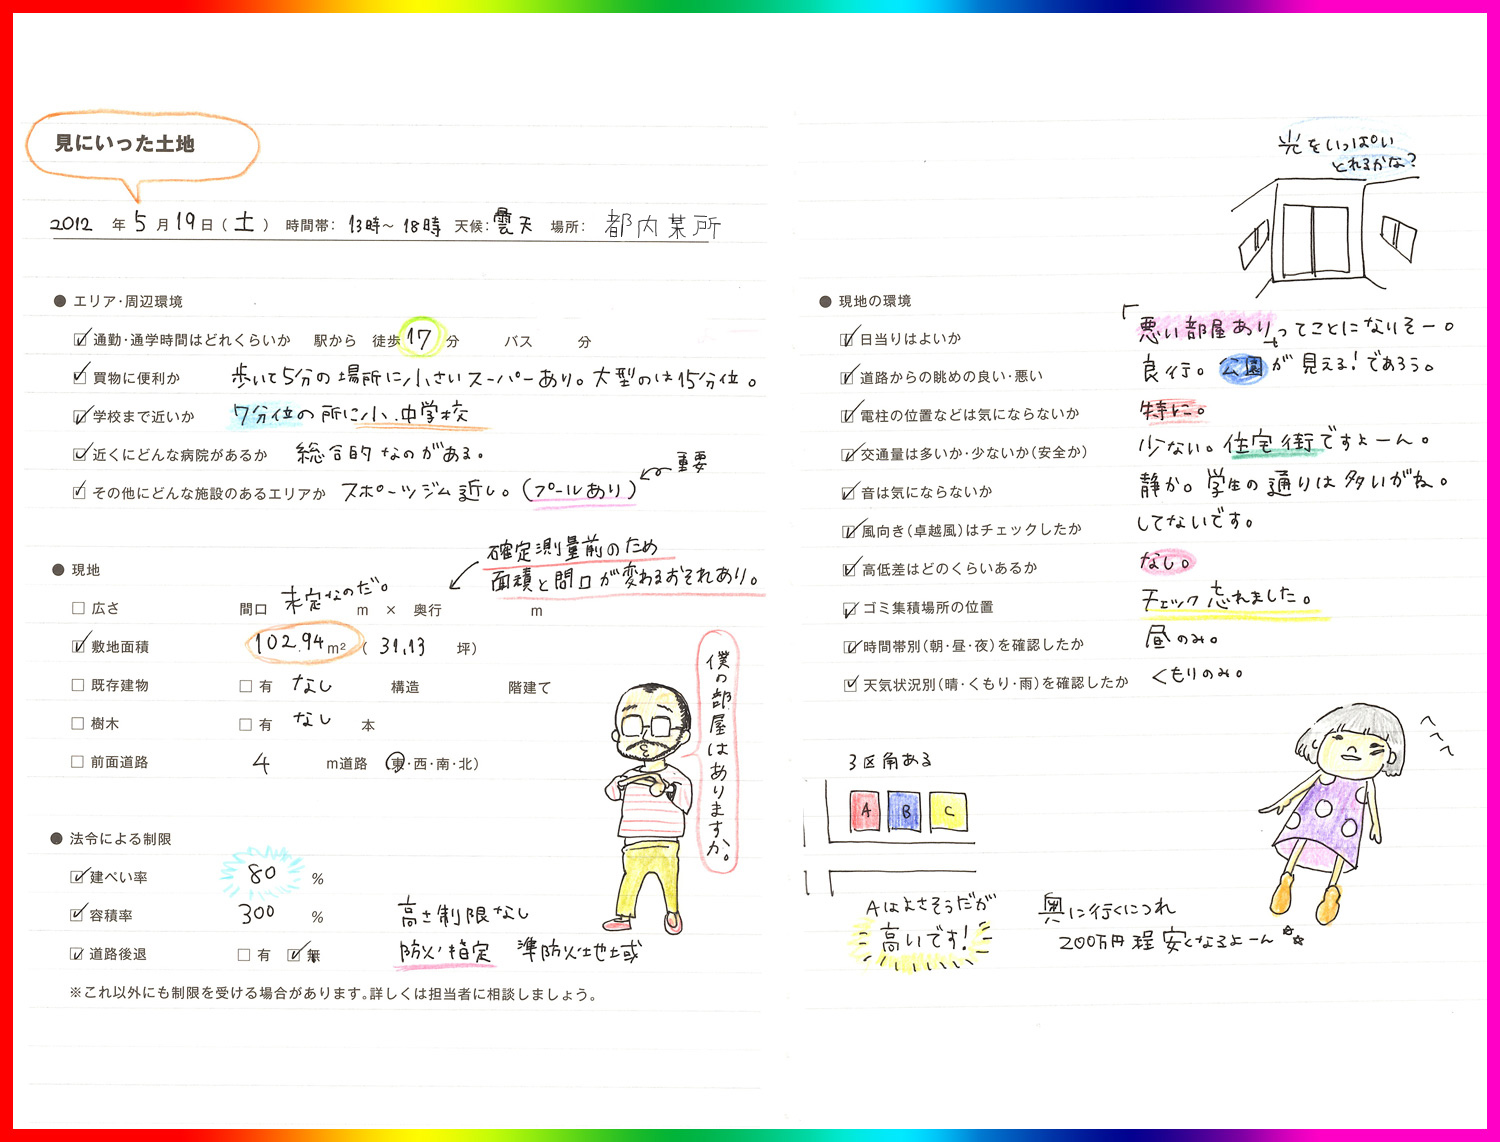 見にいった土地
2012 年 5 月 19 日 ( 土 ) 時間帯: 13時〜18時 天候: 曇天 場所: 都内某所
● エリア・周辺環境
通勤・通学時間はどれくらいか 駅から 徒歩 17 分 バス 分
買物に便利か 歩いて5分の場所に小さいスーパーあり。大型のは15分位。
学校まで近いか 7分位の所に小、中学校
近くにどんな病院があるか 総合的なのがある。
その他にどんな施設のあるエリアか スポーツジム近し。(プールあり)
重要
● 現地
確定測量前のため
面積と間口が変わるおそれあり。
広さ 間口 未定なのだ。 m × 奥行 m
敷地面積 102.94 m² ( 31.13 坪)
既存建物 有 なし 構造 階建て
樹木 有 なし 本
前面道路 4 m道路 (東・西・南・北)
僕の部屋はありますか。
● 法令による制限
建ぺい率 80 %
容積率 300 %
道路後退 有 無
高さ制限なし
防火指定 準防火地域
※これ以外にも制限を受ける場合があります。詳しくは担当者に相談しましょう。
光をいっぱい
とれるかな?
● 現地の環境
日当りはよいか 「悪い部屋あり」ってことにないそー。
道路からの眺めの良い・悪い 良行。公園が見える!であろう。
電柱の位置などは気にならないか 特に。
交通量は多いか・少ないか(安全か) 少ない。住宅街ですよーん。
音は気にならないか 静か。学生の通りは多いがね。
風向き(卓越風)はチェックしたか してないです。
高低差はどのくらいあるか なし。
ゴミ集積場所の位置 チェック忘れました。
時間帯別(朝・昼・夜)を確認したか 昼のみ。
天気状況別(晴・くもり・雨)を確認したか くもりのみ。
3区角ある
A B C
Aはよさそうだが
高いです!
奥に行くにつれ
200万円程安くなるよーん
へへへ